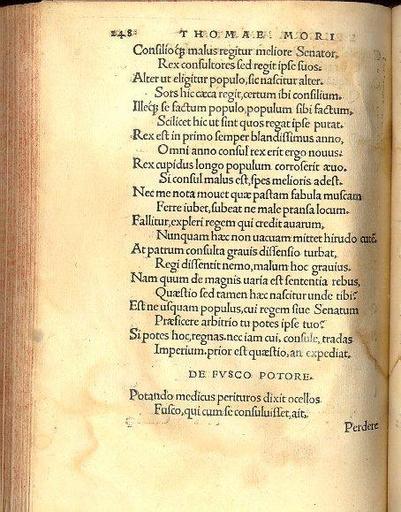 248 THOMAE MORI
Consilioq́; malus regitur meliore Senator,
Rex consultores sed regit ipse suos.
Alter ut eligitur populo, sic nascitur alter.
Sors hic cæca regit, certum ibi consilium.
Illeq́; se factum populo, populum sibi factum,
Scilicet hic ut sint quos regat ipse putat.
Rex est in primo semper blandissimus anno,
Omni anno consul rex erit ergo nouus.
Rex cupidus longo populum corroserit æuo.
Si consul malus est, spes melioris adest.
Nec me nota mouet quæ pastam fabula muscam
Ferre iubet, subeat ne male pransa locum.
Fallitur, expleri regem qui credit auarum,
Nunquam hæc non uacuam mittet hirudo cutē.
At patrum consulta grauis dissensio turbat,
Regi dissentit nemo, malum hoc grauius.
Nam quum de magnis uaria est sententia rebus,
Quæstio sed tamen hæc nascitur unde tibi?
Est ne usquam populus, cui regem siue Senatum
Præficere arbitrio tu potes ipse tuo?
Si potes hoc, regnas. nec iam cui, consule, tradas
Imperium. prior est quæstio, an expediat.
DE FVSCO POTORE.
Potando medicus perituros dixit ocellos
Fusco, qui cum se consuluisset, ait.
Perdere